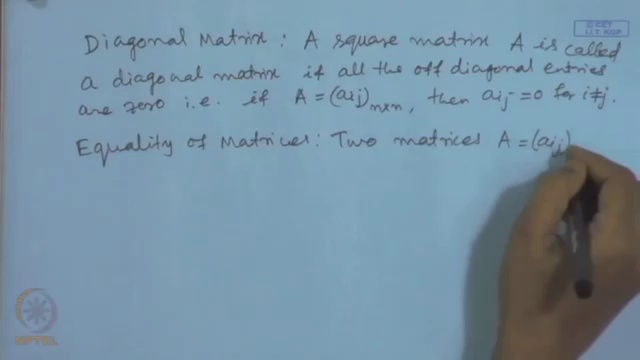 © CET
I.I.T. KGP
Diagonal Matrix : A square matrix A is called
a diagonal matrix if all the off diagonal entries
are zero i.e. if A = (aij)n×n, then aij = 0 for i≠j.
Equality of Matrices : Two matrices A = (aij)
NPTEL